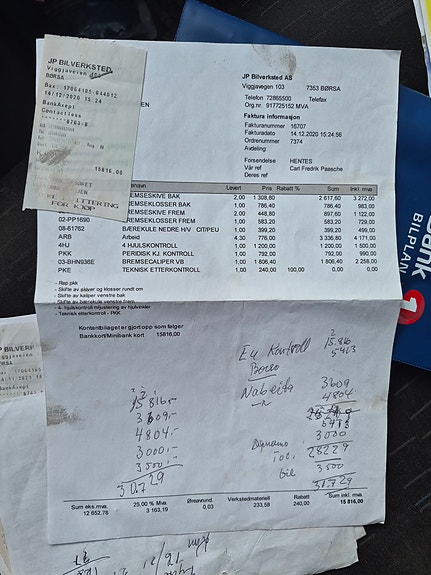 JP BILVERKSTED
Viggjaveien
BØRSA
Bax: 17064105-044012
14/12/2020 15:24
BankAxept
Contactless
15816.00
KJØP
JP Bilverksted AS
Viggjaveien 103 7353 BØRSA
Telefon 72865500 Telefax
Org.nr. 917725152 MVA
Faktura informasjon
Fakturanummer 16707
Fakturadato 14.12.2020 15:24:56
Ordrenummer 7374
Avdeling
Forsendelse HENTES
Vår ref Carl Fredrik Paasche
Deres ref
Levert Pris Rabatt % Sum Inkl. mva
BREMSESKIVE BAK 2,00 1 308,80 2 617,60 3 272,00
BREMSEKLOSSER BAK 1,00 786,40 786,40 983,00
BREMSESKIVE FREM 2,00 448,80 897,60 1 122,00
02-PP1690 BREMSEKLOSSER FREM 1,00 583,20 583,20 729,00
08-61762 BÆREKULE NEDRE H/V CIT/PEU 1,00 399,20 399,20 499,00
ARB Arbeid 4,30 776,00 3 336,80 4 171,00
4HJ 4 HJULSKONTROLL 1,00 1 200,00 1 200,00 1 500,00
PKK PERIDISK KJ. KONTROLL 1,00 792,00 792,00 990,00
03-BHN936E BREMSECALIPER VB 1,00 1 806,40 1 806,40 2 258,00
PKE TEKNISK ETTERKONTROLL 1,00 240,00 100,00 0,00 0,00
- Rep pkk
- Skifte av skiver og klosser rundt om
- Skifte av kaliper venstre bak
- Skifte av bærekule venstre frem
- 4. hjulskontroll m/justering av hjulvinkler
- Teknisk etterkontroll - PKK
Kontantbilaget er gjort opp som følger
Bankkort/Minibank kort 15816,00
Eu Kontroll 15.816
5413
Nabeita 3609
4804
5413
Dynamo 3000
Tot. 28229
bil 3500
31.729
15816.-
3609.-
4804.-
3000.-
3500.-
30.729
Sum eks.mva. 25,00 % Mva Øreavrund. Verkstedmateriell Rabatt Sum inkl. mva
12 652,78 3 163,19 0,03 233,58 240,00 15 816,00
JP BILVERK
12/21
BILPLAN
1